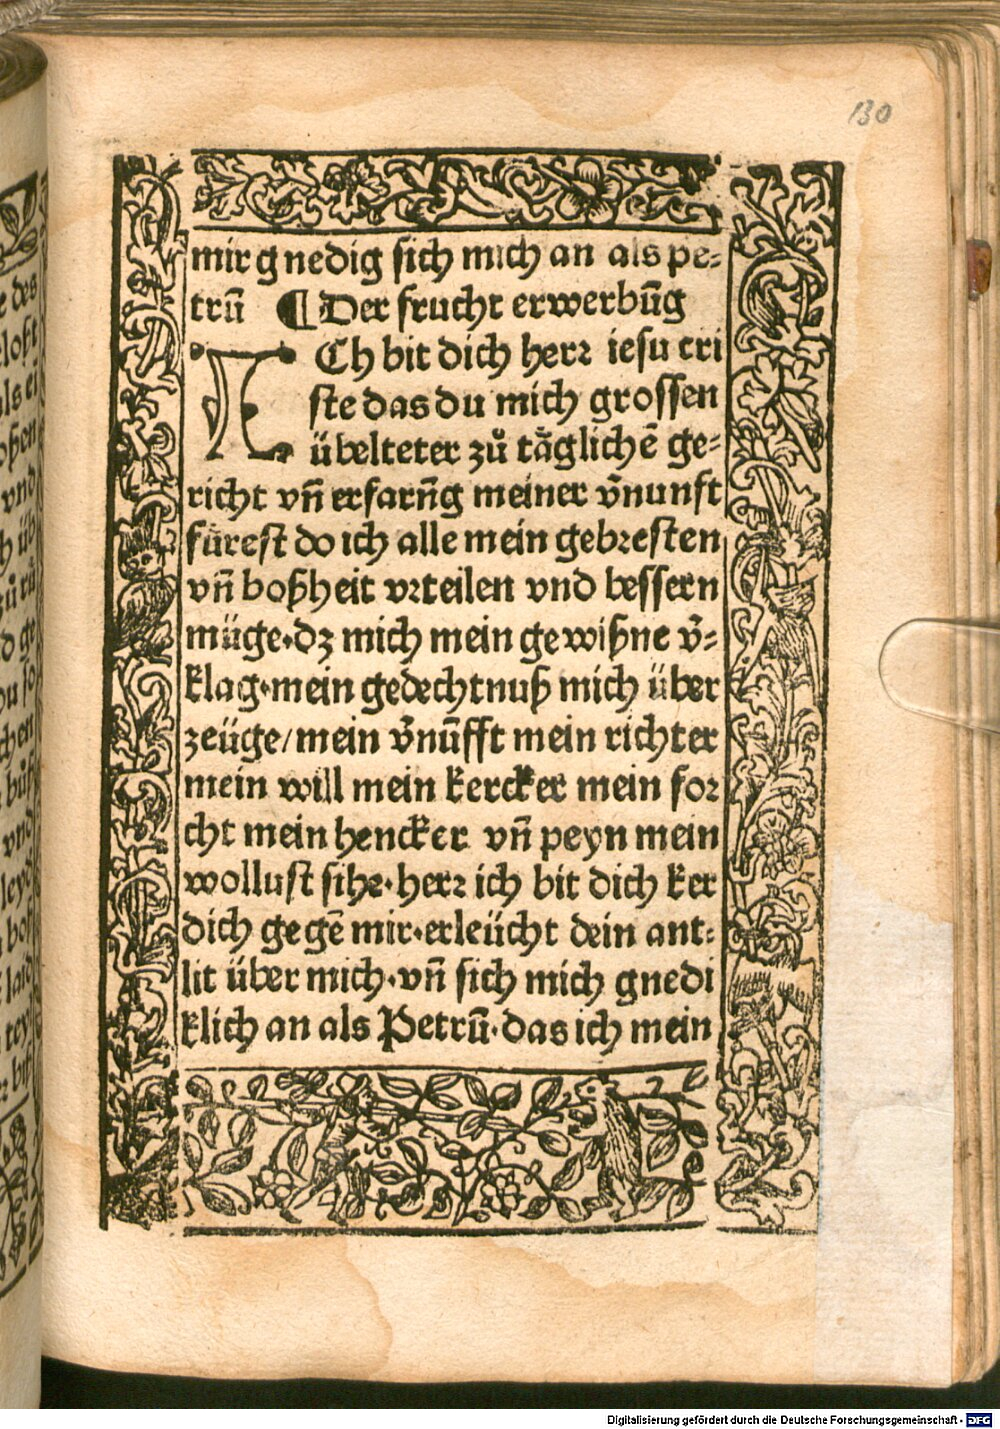 130
mir gnedig sich mich an als pe-
trū ¶ Der frucht erwerbūg
ICh bit dich herr iesu cri
ste das du mich grossen
übelteter zů tåglichē ge-
richt vn̄ erfarn̄g meiner v̄nunft
fürest do ich alle mein gebresten
vn̄ boßheit vrteilen vnd bessern
müge·dz mich mein gewißne v̄-
klag·mein gedechtnuß mich über
zeüge/mein v̄nūfft mein richter
mein will mein kercker mein for
cht mein hencker vn̄ peyn mein
wollust sihe·herr ich bit dich ker
dich gegē mir·erleücht dein ant-
lit über mich·vn̄ sich mich gnedi
klich an als Petrū·das ich mein
Digitalisierung gefördert durch die Deutsche Forschungsgemeinschaft - DFG